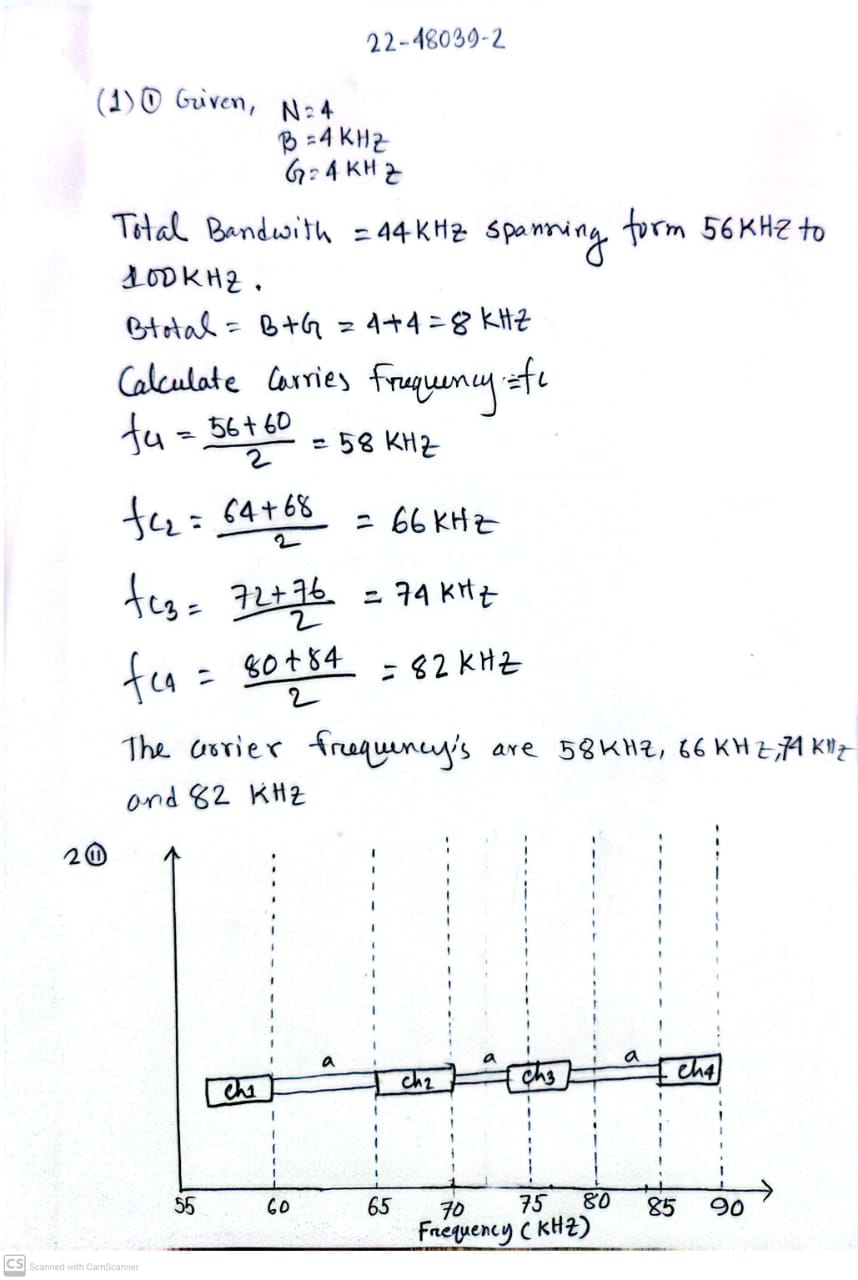 22-48039-2
(1) ① Given, N=4
B=4 KHz
G=4 KHz
Total Bandwith = 44 KHz spanning form 56 KHZ to
100 KHZ.
Btotal = B+G = 4+4 = 8 KHZ
Calculate Carries Frequency = fc
fc1 = 56+60 / 2 = 58 KHZ
fc2 = 64+68 / 2 = 66 KHZ
fc3 = 72+76 / 2 = 74 KHZ
fc4 = 80+84 / 2 = 82 KHZ
The carrier frequency's are 58 KHZ, 66 KHZ, 74 KHZ
and 82 KHZ
2 ⑪
a a a
ch1 ch2 ch3 ch4
55 60 65 70 75 80 85 90
Frequency (KHZ)
CS Scanned with CamScanner